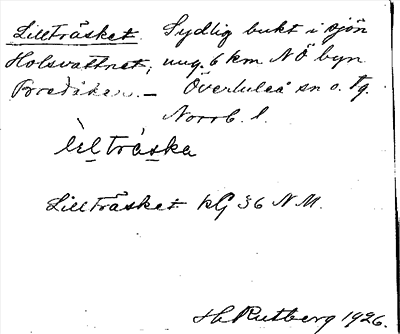 Lillträsket. Sydlig bukt i sjön
Holsvattnet, ung. 6 km NÖ byn
Bredåker. — Överluleå sn o. tg.
Norrb. l.
lìlträska
Lillträsket kG 36 N.M.
H. Rutberg 1926.